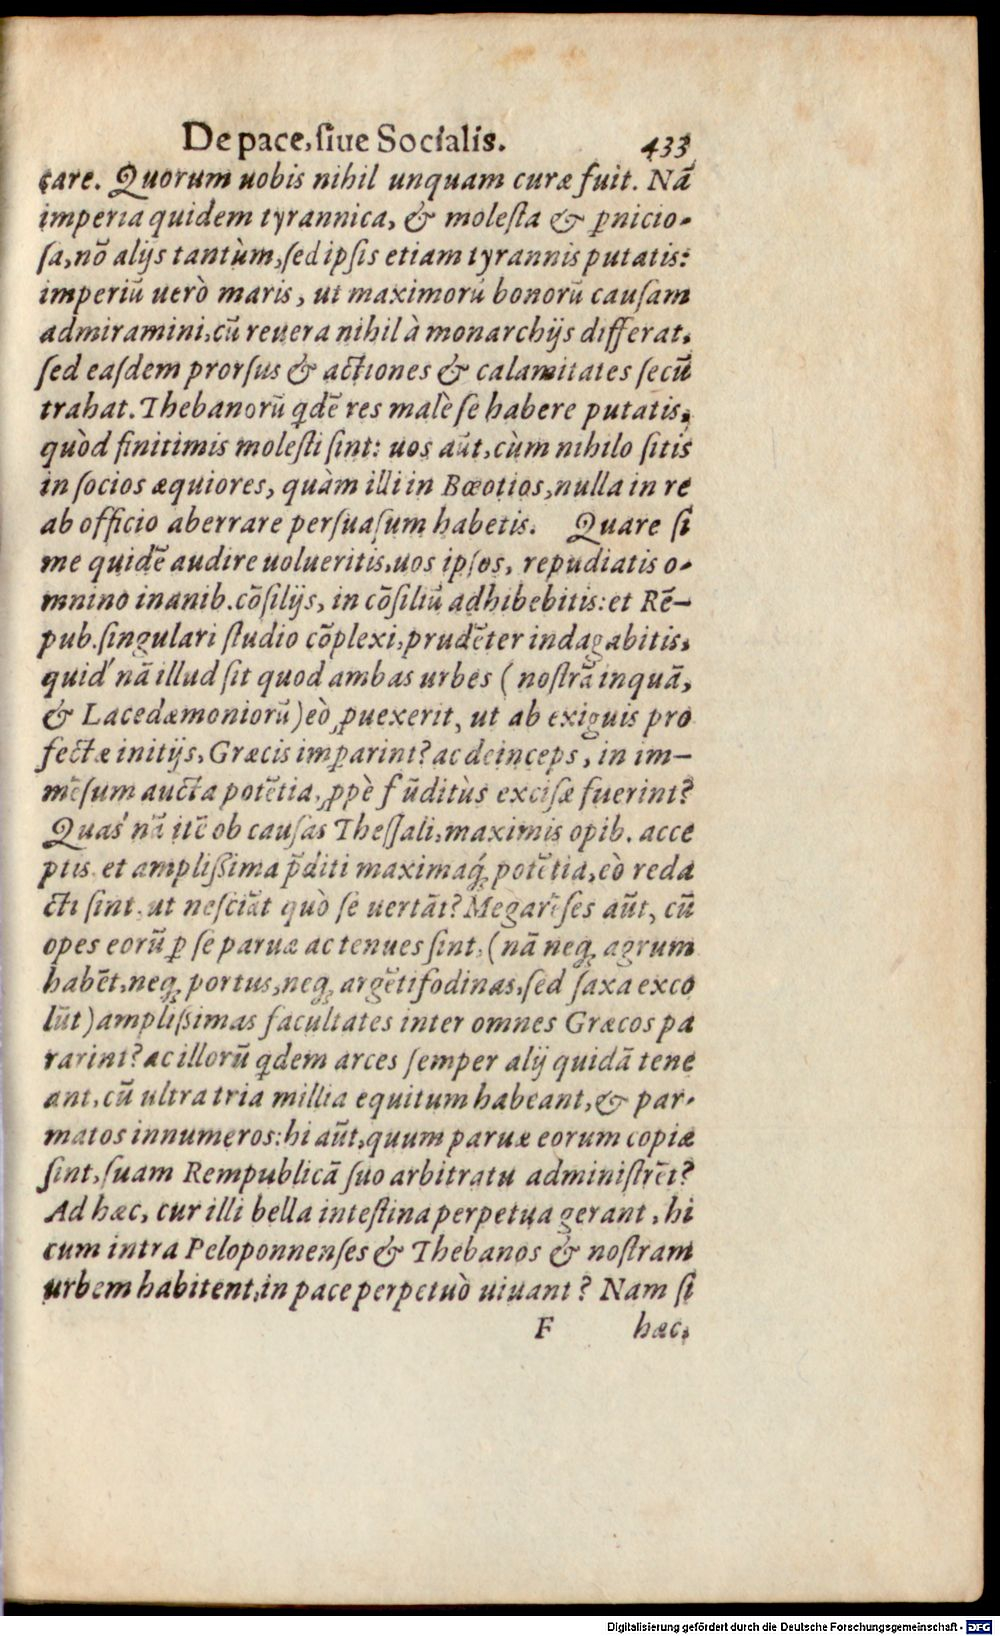 De pace, ſiue Socialis. 433
care. Quorum uobis nihil unquam curæ fuit. Nã
imperia quidem tyrannica, & moleſta & ꝑnicio-
ſa, nõ alijs tantùm, ſed ipſis etiam tyrannis putatis:
imperiũ uerò maris, ut maximorũ bonorũ cauſam
admiramini, cũ reuera nihil à monarchijs differat,
ſed eaſdem prorſus & actiones & calamitates ſecũ
trahat. Thebanorũ qdẽ res malè ſe habere putatis,
quòd finitimis moleſti ſint: uos aũt, cùm nihilo ſitis
in ſocios æquiores, quàm illi in Bœotios, nulla in re
ab officio aberrare perſuaſum habetis. Quare ſi
me quidẽ audire uolueritis, uos ipſos, repudiatis o-
mnino inanib. cõſilijs, in cõſiliũ adhibebitis: et Rẽ-
pub. ſingulari ſtudio cõplexi, prudẽter indagabitis,
quid nã illud ſit quod ambas urbes ( noſtrã inquã,
& Lacedæmoniorũ) eò ꝓuexerit, ut ab exiguis pro
fectæ initijs, Græcis imꝑarint? ac deinceps, in im-
mẽſum aucta potẽtia, ꝓpè fũditùs exciſæ fuerint?
Quas nã itẽ ob cauſas Theſſali, maximis opib. acce
ptis et ampliſsima p̃diti maximaq́; potẽtia, eò reda
cti ſint, ut neſciãt quò ſe uertãt? Megarẽſes aũt, cũ
opes eorũ ꝑ ſe paruæ ac tenues ſint, (nã neq; agrum
habẽt, neq; portus, neq; argẽtifodinas, ſed ſaxa exco
lũt) ampliſsimas facultates inter omnes Græcos pa
rarint? ac illorũ qdem arces ſemper alij quidã tene
ant, cũ ultra tria millia equitum habeant, & par-
matos innumeros: hi aũt, quum paruæ eorum copiæ
ſint, ſuam Rempublicã ſuo arbitratu adminiſtrẽt?
Ad hæc, cur illi bella inteſtina perpetua gerant, hi
cum intra Peloponnenſes & Thebanos & noſtram
urbem habitent, in pace perpetuò uiuant? Nam ſi
F hæc,
Digitalisierung gefördert durch die Deutsche Forschungsgemeinschaft - DFG